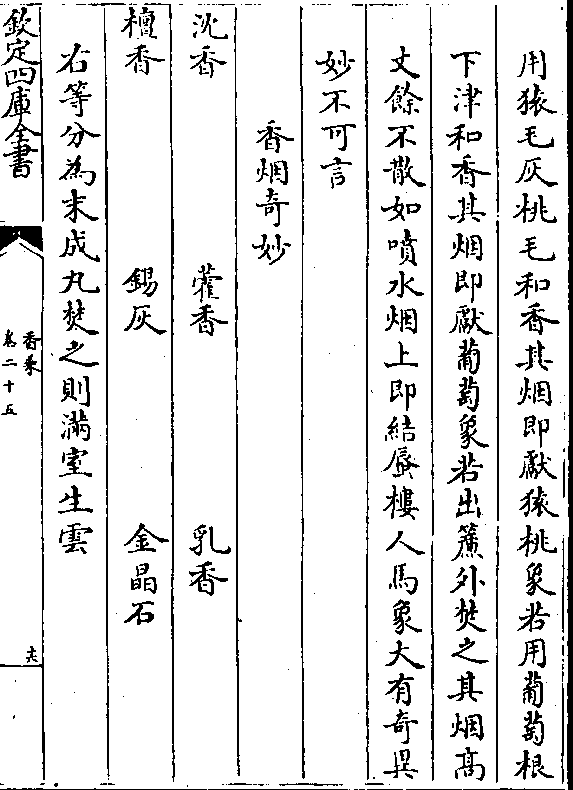 用猿毛灰桃毛和香其烟即獻猿桃象若用葡萄根
下津和香其烟即獻葡萄象若出簾外焚之其烟高
丈餘不散如噴水烟上即結蜃樓人馬象大有奇異
妙不可言
香烟奇妙
沈香 藿香 乳香
檀香 錫灰 金晶石
右等分為末成丸焚之則滿室生雲
欽定四庫全書
香乘
卷二十五
十六